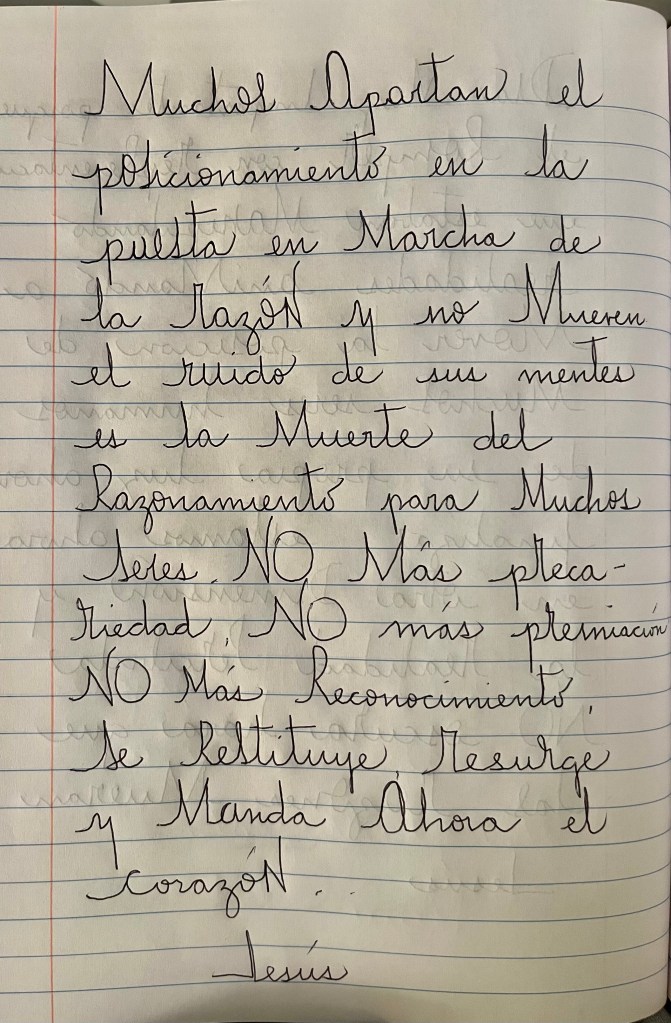 Muchos Apartan el
posicionamiento en la
puesta en Marcha de
la razóN y no Mueren
el ruido de sus mentes
es la Muerte del
Razonamiento para Muchos
seres. NO Más preca-
riedad, NO más premiación
NO Más Reconocimiento,
se Restituye, resurge
y Manda Ahora el
corazóN...
Jesús